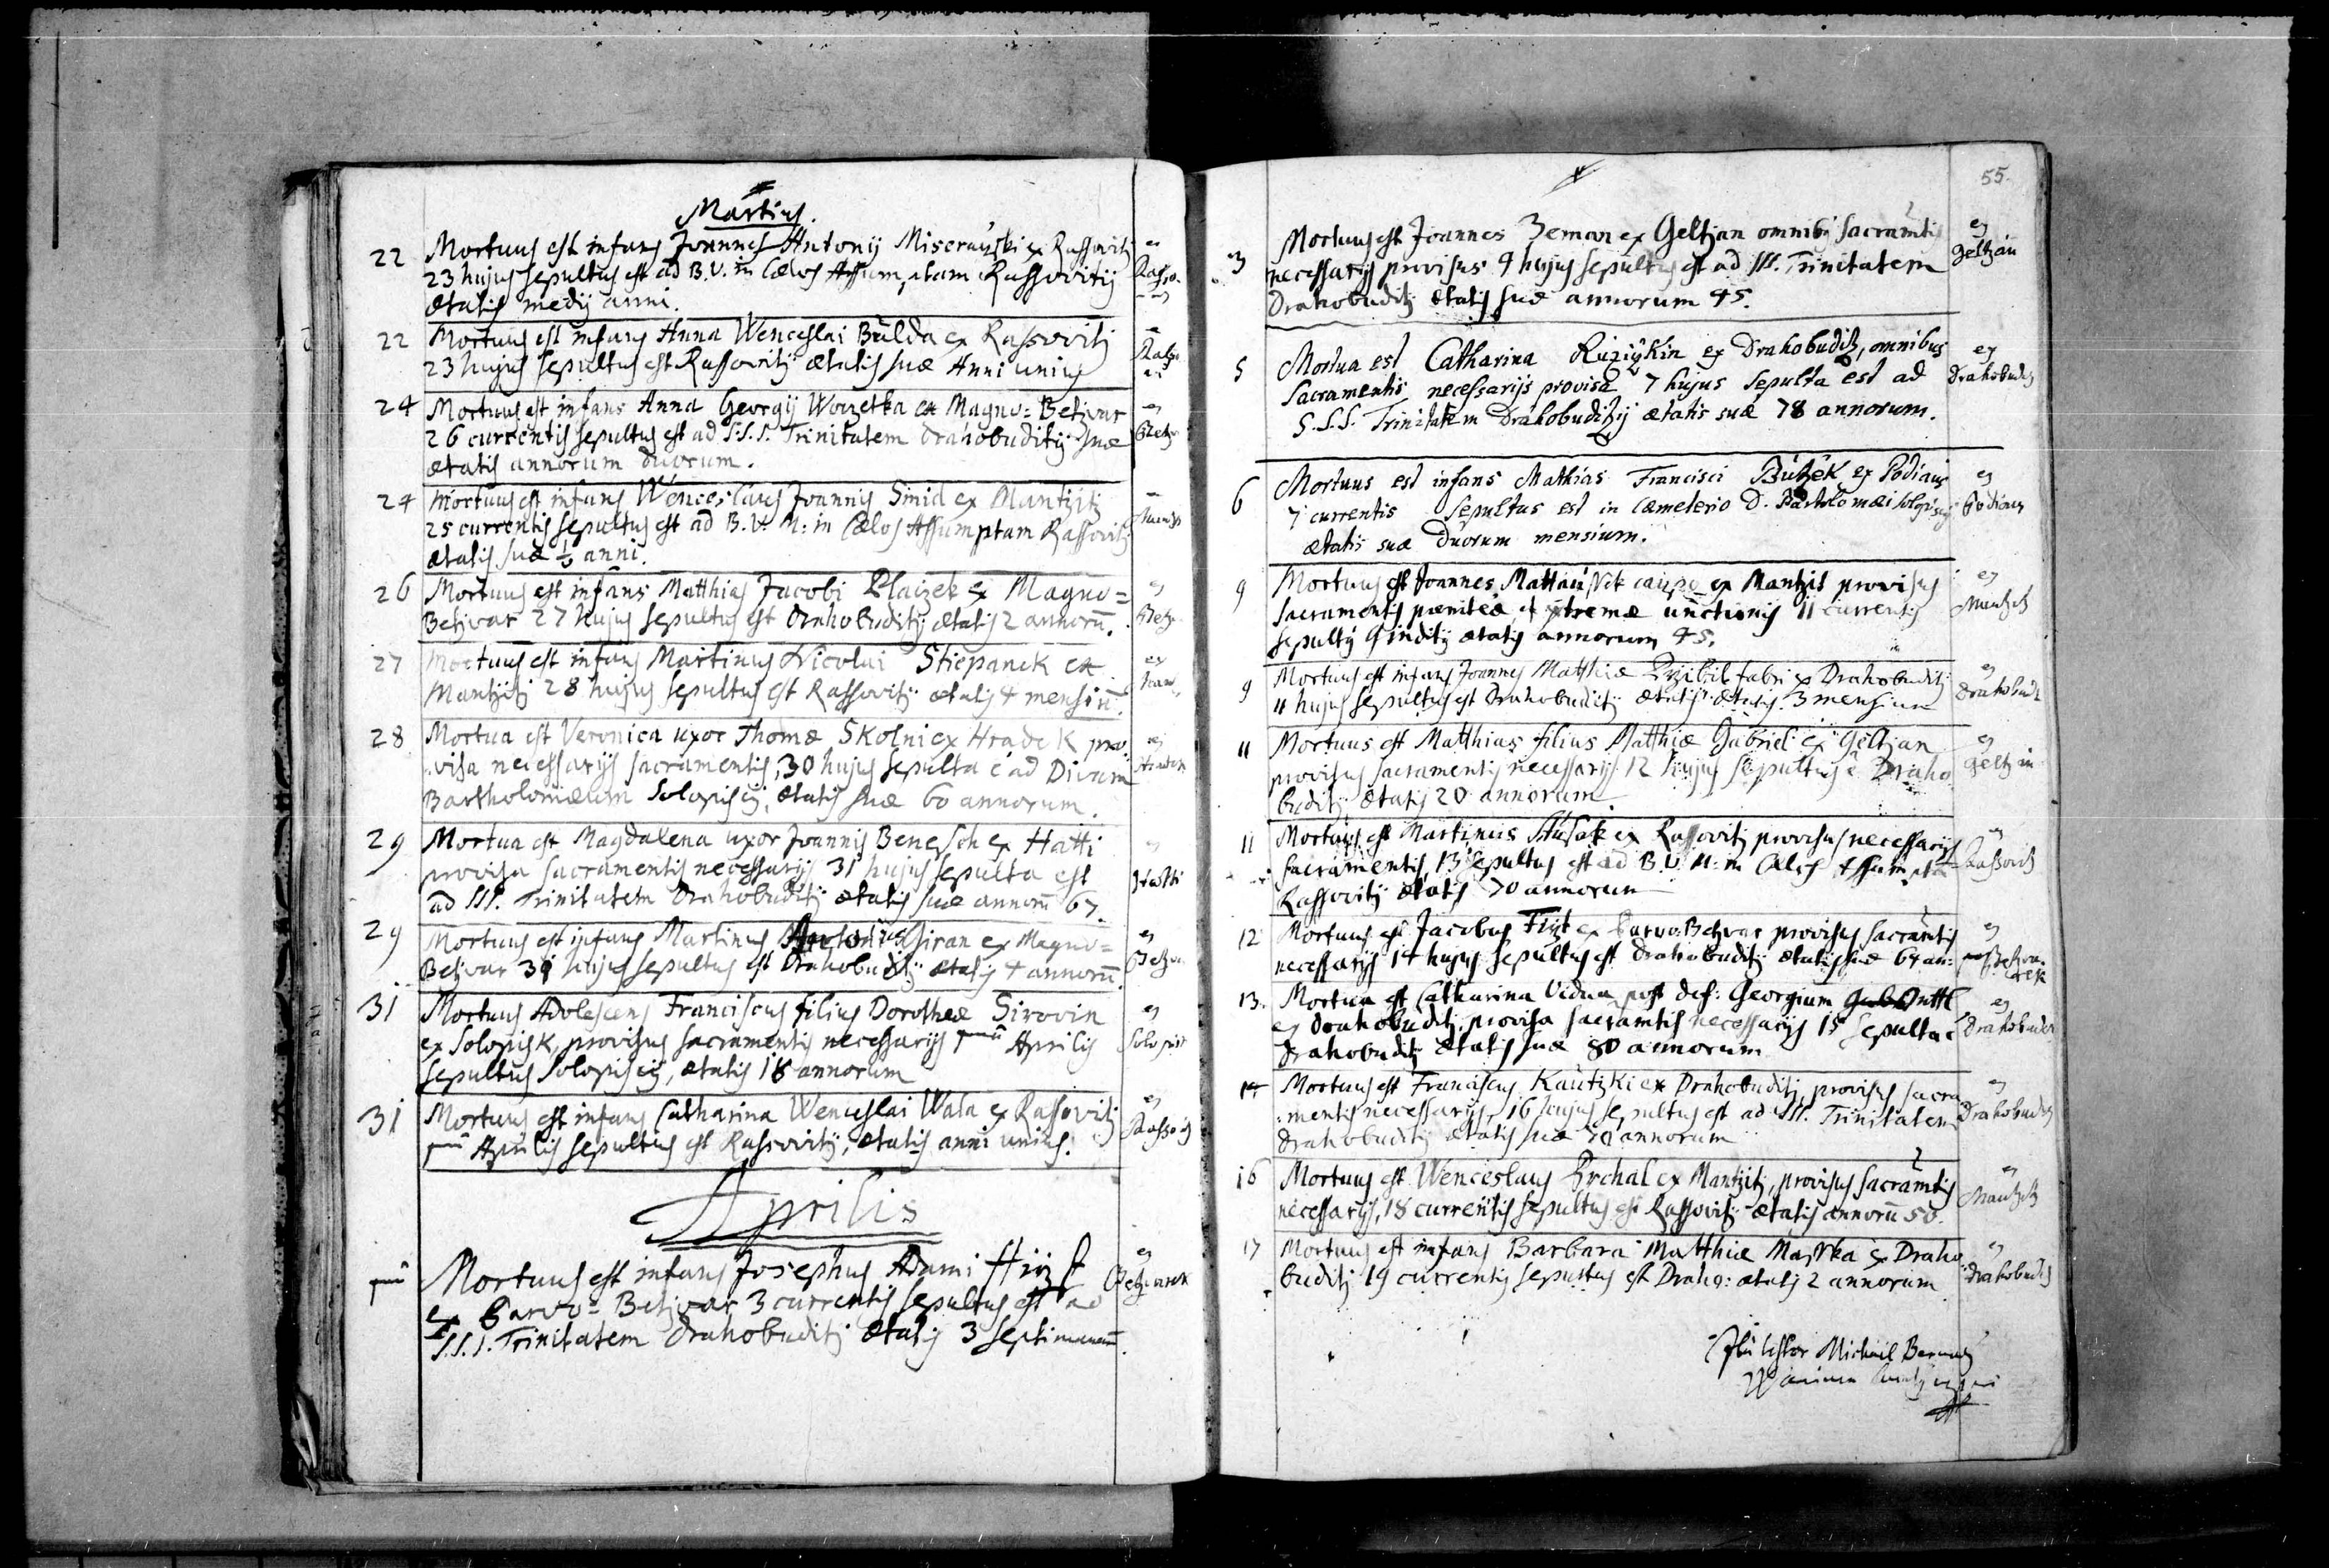 Martius.
22 Mortuus est infans Joannes Antonij ex Rassovitz ex
23 hujus sepultus est ad B.V. in Cælos Assumptam Rassovitij Rasso-
Ætatis medij anni.
22 Mortuus est infans Anna Wenceslai Bulda ex Rassovitz
23 hujus sepultus est Rassovitij ætatis suæ Anni unius
24 Mortuus est infans Anna Georgij Worzetka ex Magno= Betzvar ex
26 currentis sepultus est ad S.S.S. Trinitatem Drahobuditij suæ Betz
ætatis annorum duorum.
24 Mortuus est infans Wenceslaus Joannis Smid ex Mantzitz
25 currentis sepultus est ad B.V. M: in Cælos Assumptam Rassovitz
ætatis suæ ½ anni.
26 Mortuus est infans Matthias Jacobi ex Magno= ex
Betzvar 27 hujus sepultus est Drahobuditij ætatis 2 annorū. Betz
27 Mortuus est infans Martinus Nicolai Stiepanek ex ex
Mantzitz 28 hujus sepultus est Rassovitij ætatis 4 mensiū.
28 Mortua est Veronica uxor Thomæ Skolni ex Hradek pro- ex
visa necessarijs sacramentis, 30 hujus sepulta ē ad Divum Hradek
Bartholomæum Solopiscij, ætatis suæ 60 annorum.
29 Mortua est Magdalena uxor Joannis Benesch ex Hatti
provisa sacramentis necessarijs 31 hujus sepulta est Hatti
ad SSS. Trinitatem Drahobuditij ætatis suæ annorū 67.
29 Mortuus est infans Martinus Giran ex Magno= ex
Betzvar 31 hujus sepultus est Drahobuditij ætatis 4 annorū. Betzv
31 Mortuus Adolescens Franciscus filius Dorotheæ Sirovin ex
ex Solopisk, provisus sacramentis necessarijs Aprilis Solopis
sepultus Solopiscij, ætatis 18 annorum
31 Mortuus est infans Catharina Wenceslai Wala ex Rassovitz ex
Aprilis sepultus est Rassovitij, ætatis anni unius. Rassovitz
Aprilis
Mortuus est infans Josephus Adami ex
ex Parvo= Betzvar 3 currentis sepultus est ad Betzvarek
S.S.S. Trinitatem Drahobuditz ætatis 3 septimanarū.
55.
3 Mortuus est Joannes Zeman ex Geltzan omnibus sacramtis ex
necessarijs provisus 4 hujus sepultus est ad SSS. Trinitatem Geltzan
Drahobuditz ætatis suæ annorum 45.
5 Mortua est Catharina ex Drahobuditz, omnibus ex
Sacramentis necessarijs provisa 7 hujus Sepulta est ad Drahobuditz
S.S.S. Trinitatem Drahobuditzij ætatis suæ 78 annorum.
6 Mortuus est infans Mathias Francisci Butzek ex Podiaus ex
7 currentis Sepultus est in Cæmeterio D. Bartolomæi Solopiscij Podiaus
ætatis suæ duorum mensium.
9 Mortuus est Joannes caupo ex Mantzit provisus ex
sacramentis pœniteæ et extremæ unctionis 11 currentis Mantzitz
sepultus ætatis annorum 45.
9 Mortuus est infans Joannes Matthiæ Przibil fabri ex Drahobuditz ex
11 hujus sepultus est Drahobuditij ætatis ætatis 3 mensium Drahobudi
11 Mortuus est Matthias filius Matthiæ Gabriel ex Geltzan ex
provisus sacramentis necessarijs 12 hujus sepultus ē Draho Geltzan
buditij ætatis 20 annorum.
11 Mortuus est Martinus ex Rassovitz provisus necessarijs ex
sacramentis, 13 sepultus est ad B.V. M: in Cælos Assumptā Rassovitz
Rassovitij ætatis 70 annorum
12 Mortuus est Jacobus ex Parvo Betzvar provisus sacramtis ex
necessarijs 14 hujus sepultus est Drahobuditij ætatis suæ 64 an: Betzva-
rek
13. Mortua est Catharina Vidua post def: Georgium ex
ex Drahobuditz, provisa sacramtis necessarijs 15 sepulta ē Drahobuditz
Drahobuditz ætatis suæ 80 annorum
14 Mortuus est Franciscus Kautzki ex Drahobuditz, provisus sacra- ex
mentis necessarijs, 16 hujus sepultus est ad SSS. Trinitatem Drahobuditz
Drahobuditij ætatis suæ 70 annorum
16 Mortuus est Wenceslaus Brchal ex Mantzitz, provisus sacramtis ex
necessarijs, 18 currentis sepultus est Rassovitij ætatis annorū 50. Mantzitz
17 Mortuus est infans Barbara Matthiæ ex Draho ex
buditz 19 currentis sepultus est Draho: ætatis 2 annorum Drahobuditz
Michael